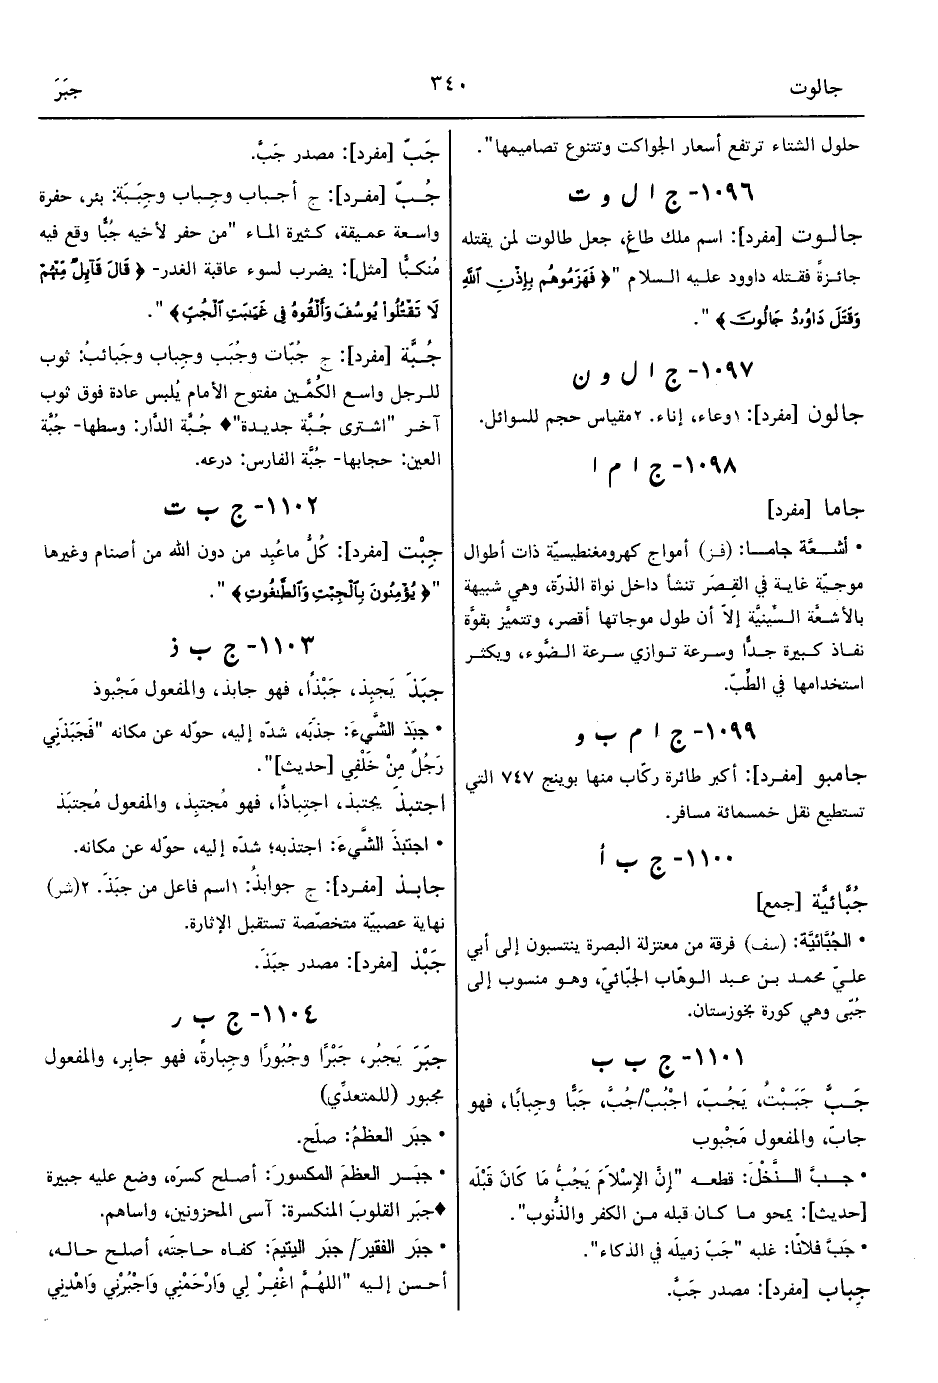 جالوت
٣٤٠
جبَرَ
حلول الشتاء ترتفع أسعار الجواكت وتتنوع تصاميمها".
١٠٩٦- ج ا ل و ت
جالـوت [مفرد]: اسم ملك طاغٍ، جعل طالوت لمن يقتله
جائزةً فقـتله داوود علـيه الـسلام "﴿ فَهَزَمُوهُم بِإِذْنِ ٱللَّهِ
وَقَتَلَ دَاوُۥدُ جَالُوتَ ﴾ ".
١٠٩٧- ج ا ل و ن
جالون [مفرد]: ١وعاء، إناء. ٢مقياس حجم للسوائل.
١٠٩٨- ج ا م ا
جاما [مفرد]
• أشــعَّة جامــا: (فـز) أمواج كهرومغنطيسيّة ذات أطوال
موجيّة غاية في القِصَر تنشأ داخل نواة الذرّة، وهي شبيهة
بالأشعَّة السِّينيَّة إلاّ أن طول موجاتها أقصر، وتتميَّز بقوَّة
نفـاذ كـبيرة جـدًّا وسـرعة تـوازي سـرعة الـضَّوء، ويكثـر
استخدامها في الطِّبّ.
١٠٩٩- ج ا م ب و
جامبو [مفرد]: أكبر طائرة ركّاب منها بوينج ٧٤٧ التي
تستطيع نقل خمسمائة مسافر.
١١٠٠- ج ب أ
جُبَّائيَّة [جمع]
• الجُبَّائيَّة: (سف) فرقة من معتزلة البصرة ينتسبون إلى أبي
علـيّ محمـد بـن عبـد الـوهّاب الجُبّائيّ، وهـو منسوب إلى
جُبّى وهي كورة بخوزستان.
١١٠١- ج ب ب
جَــبَّ جَبَـبْتُ، يَجُـبّ، اجْبُبْ/جُبَّ، جَبًّا وجِبابًا، فهو
جابّ، والمفعول مَجْبوب
• جــبَّ الــنَّخْلَ: قطعــه "إِنَّ الإِسْلاَمَ يَجُبُّ مَا كَانَ قَبْلَه
[حديث]: يمحو مـا كـان قبله مـن الكفر والذُّنوب".
• جَبَّ فلانًا: غلبه "جَبّ زميلَه في الذكاء".
جِباب [مفرد]: مصدر جَبَّ.
جَبّ [مفرد]: مصدر جَبَّ.
جُـبّ [مفرد]: ج أجـباب وجِـباب وجِبَـبَة: بئر، حفرة
واسـعة عمـيقة، كـثيرة المـاء "من حفر لأخيه جُبًّا وقع فيه
مُنكـبًّا [مثل]: يضرب لسوء عاقبة الغدر- ﴿ قَالَ قَآئِلٌ مِّنْهُمْ
لَا تَقْتُلُوا۟ يُوسُفَ وَأَلْقُوهُ فِى غَيَـٰبَتِ ٱلْجُبِّ ﴾ ".
جُـبَّة [مفرد]: ج جُبّات وجُبَب وجِباب وجَبائبُ: ثوب
للـرجل واسـع الكُمَّـين مفتوح الأمام يُلبس عادة فوق ثوب
آخـر "اشـترى جُبَّة جديدة"♦ جُـبَّة الدَّار: وسطها- جُبَّة
العين: حجابها- جُبَّة الفارس: درعه.
١١٠٢- ج ب ت
جِبْت [مفرد]: كُلُّ ماعُبِد من دون الله من أصنام وغيرها
"﴿ يُؤْمِنُونَ بِٱلْجِبْتِ وَٱلطَّـٰغُوتِ ﴾ ".
١١٠٣- ج ب ذ
جبَذَ يَجبِذ، جَبْذًا، فهو جابذ، والمفعول مَجْبوذ
• جبَذ الشَّيءَ: جذبَه، شدّه إليه، حوّله عن مكانه "فَجَبَذَنِي
رَجُلٌ مِنْ خَلْفِي [حديث]".
اجتبذَ يجتبذ، اجتِباذًا، فهو مُجتبِذ، والمفعول مُجتبَذ
• اجتبَذَ الشَّيءَ: اجتذبه؛ شدّه إليه، حوّله عن مكانه.
جابـذ [مفرد]: ج جوابذُ: ١اسم فاعل من جبَذَ. ٢(شر)
نهاية عصبيّة متخصّصة تستقبل الإثارة.
جَبْذ [مفرد]: مصدر جبَذَ.
١١٠٤- ج ب ر
جبَرَ يَجبُر، جَبْرًا وجُبُورًا وجِبارةً، فهو جابِر، والمفعول
مجبور (للمتعدِّي)
• جبَر العظمُ: صلَح.
• جبَــر العظمَ المكسورَ: أصـلح كسرَه، وضع عليه جبيرة
♦جبَر القلوبَ المنكسرة: آسى المحزونين، واساهم.
• جبَر الفقيرَ/ جبَر اليتيمَ: كفاه حـاجتَه، أصلـح حالـه،
أحسن إلـيه "اللهُـمَّ اغْفِـرْ لِي وَارْحَمْنِي وَاجْبُرْنِي وَاهْدِنِي